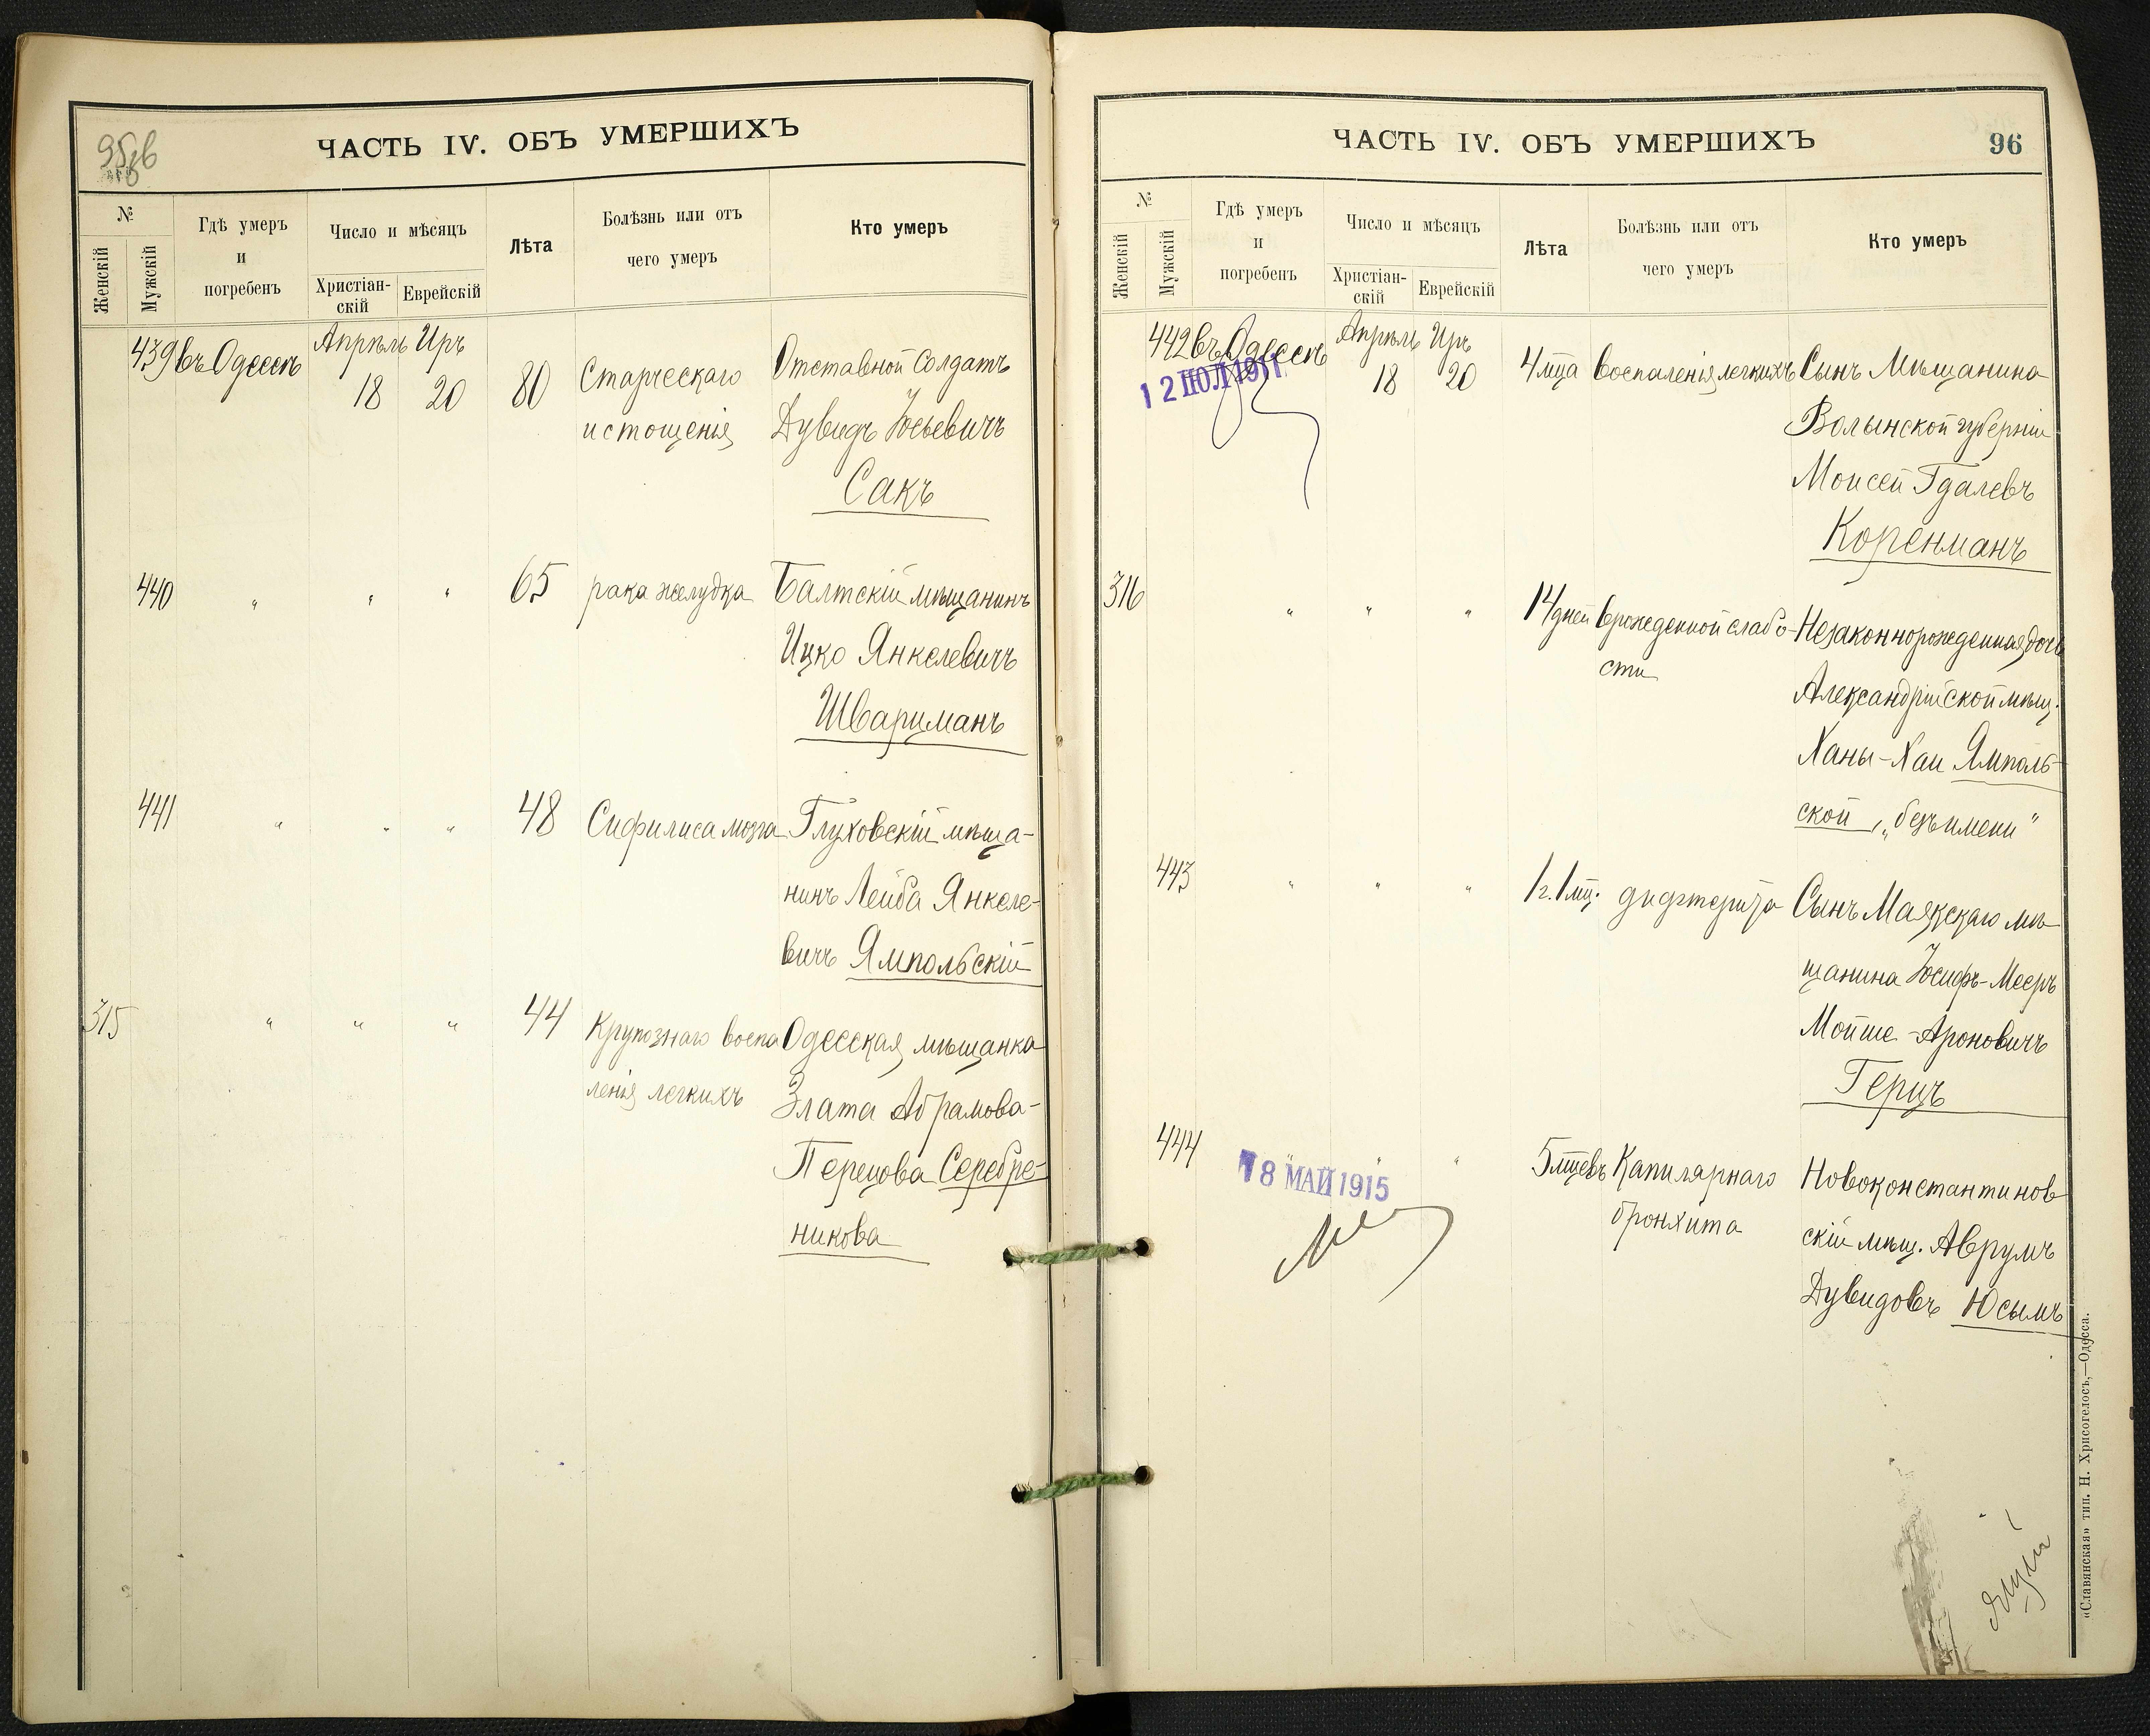 ЧАСТЬ IV. ОБЪ УМЕРШИХЪ
№
Женскій
Мужскій
Гдѣ умеръ
и
погребенъ
Число и мѣсяцъ
Христіан-
скій
Еврейскій
Лѣта
Болѣзнь или отъ
чего умеръ
Кто умеръ
439 въ Одессѣ Апрѣль Иръ
18 20 80 Старческаго Отставной солдатъ
истощенія Дувидъ Іосьевичъ
Сакъ
440 " " " 65 рака желудка Балтскій мѣщанинъ
Ицко Янкелевичъ
Шварцманъ
441 " " " 48 Сифилиса мозга Глуховскій мѣща-
нинъ Лейба Янкеле-
вичъ Ямпольскій
315 " " " 44 Крупознаго воспа Одесская мѣщанка
ленія легкихъ Злата Абрамова-
Перецова Серебре-
никова
ЧАСТЬ IV. ОБЪ УМЕРШИХЪ
96
№
Женскій
Мужскій
Гдѣ умеръ
и
погребенъ
Число и мѣсяцъ
Христіан-
скій
Еврейскій
Лѣта
Болѣзнь или отъ
чего умеръ
Кто умеръ
442 въ Одессѣ Апрѣль Иръ
12 ІЮЛ 1911
18 20 4 мца воспаленія легкихъ Сынъ Мѣщанина
Волынской губерніи
Моисей Гдалевъ
Коренманъ
316 " " " 14 дней врожденной слабо- Незаконнорожденная дочь
сти Александрійской мѣщ.
Ханы-Хаи Ямполь-
ской, "безъ имени"
443 " " " 1 г. 1 мц. дифтерита Сынъ Маякскаго мѣ-
щанина Іосифъ-Мееръ
Мойше-Ароновичъ
Герцъ
444 " " " 5 мцевъ Капилярнаго Новоконстантинов
18 МАЙ 1915
бронхита скій мѣщ. Аврумъ
Дувидовъ Юсымъ
«Славянская» тип. Н. Хрисогелосъ,—Одесса.